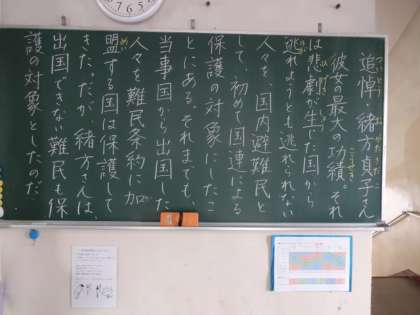 追悼・緒方貞子さん
彼女の最大の功績。それ
は悲劇が生じた国から
逃れようとも逃れられない
人々を、国内避難民と
して、初めて国連による
保護の対象にしたこ
とにある。それまでも
当事国から出国した
人々を難民条約に加
盟する国は保護して
きた。だが、緒方さんは、
出国できない難民も保
護の対象としたのだ。